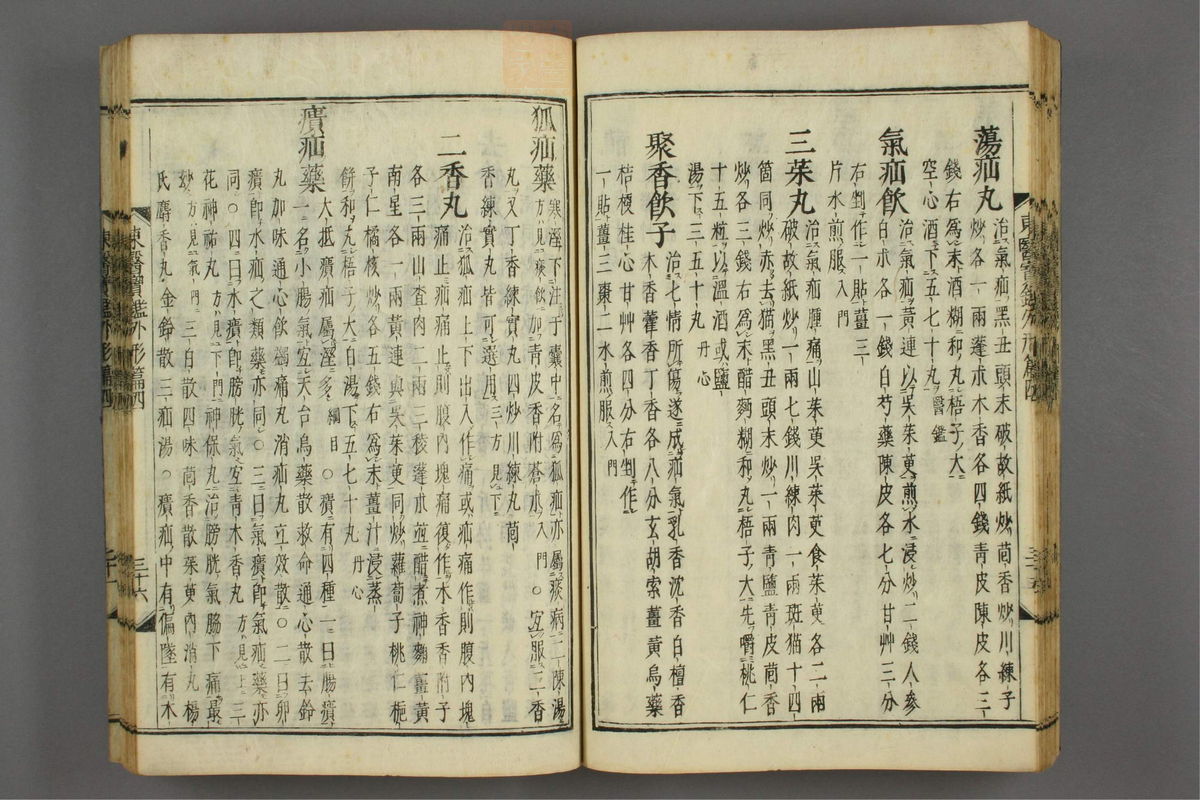 蕩疝丸治氣疝黑丑頭末破故紙炒茴香炒川練子
炒各一兩蓬朮木香各四錢青皮陳皮各三
錢右爲末酒糊和丸梧子大
空心酒下五七十丸醫鑑
氣疝飮治氣疝黃連以吳茱萸煎水浸炒二錢人參
白朮各一錢白芍藥陳皮各七分甘艸三分
右剉作一貼薑三
片水煎服入門
三茱丸治氣疝腫痛山茱萸吳茱萸食茱萸各二兩
破故紙炒一兩七錢川練肉一兩斑猫十四
箇同炒赤去猫黑丑頭末炒一兩青鹽青皮茴香
炒各三錢右爲末醋麪糊和丸梧子大先嚼桃仁
十五粒以溫酒或鹽
湯下三五十丸丹心
聚香飮子治七情所傷遂成疝氣乳香沈香白檀香
木香藿香丁香各八分玄胡索薑黃烏藥
桔梗桂心甘艸各四分右剉作
一貼薑三棗二水煎服入門
東醫寶鑑外形篇四
狐疝藥寒溼下注于囊中名爲狐疝亦屬痰病二陳湯
方見痰飮加青皮香附蒼朮入門○宜服二香
丸又丁香練實丸四炒川練丸茴
香練實丸皆可選用三方見下
二香丸治狐疝上下出入作痛或疝痛作則腹內塊
痛止疝痛止則腹內塊痛復作木香香附子
各三兩山査肉二兩三稜蓬朮並醋煮神麴薑黃
南星各一兩黃連與吳茱萸同炒蘿蔔子桃仁梔
子仁橘核炒各五錢右爲末薑汁浸蒸
餠和丸梧子大白湯下五七十丸丹心
㿉疝藥大抵㿉疝屬溼多綱目○㿉有四種一曰腸㿉
一名小腸氣宜天台烏藥散救命通心散去鈴
丸加味通心飮鄧痛丸消疝丸立效散○二曰卵
㿉卽水疝之類藥亦同○三曰氣㿉卽氣疝藥亦
同○四曰水㿉卽膀胱氣宜青木香丸方見上三
花神祐丸方見下門神保丸治膀胱氣脇下痛最
妙方見氣門三白散四味茴香散茱萸內消丸楊
氏麝香丸金鈴散三疝湯○㿉疝中有偏墜有木
東醫寶鑑外形篇四
三十六